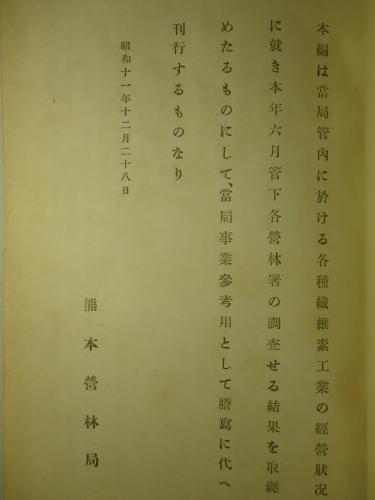 本編は當局管內に於ける各種纎維素工業の經營狀况
に就き本年六月管下各營林署の調査せる結果を取纒
めたるものにして、當局事業參考用として謄寫に代へ
刊行するものなり
昭和十一年十二月二十八日
熊本營林局